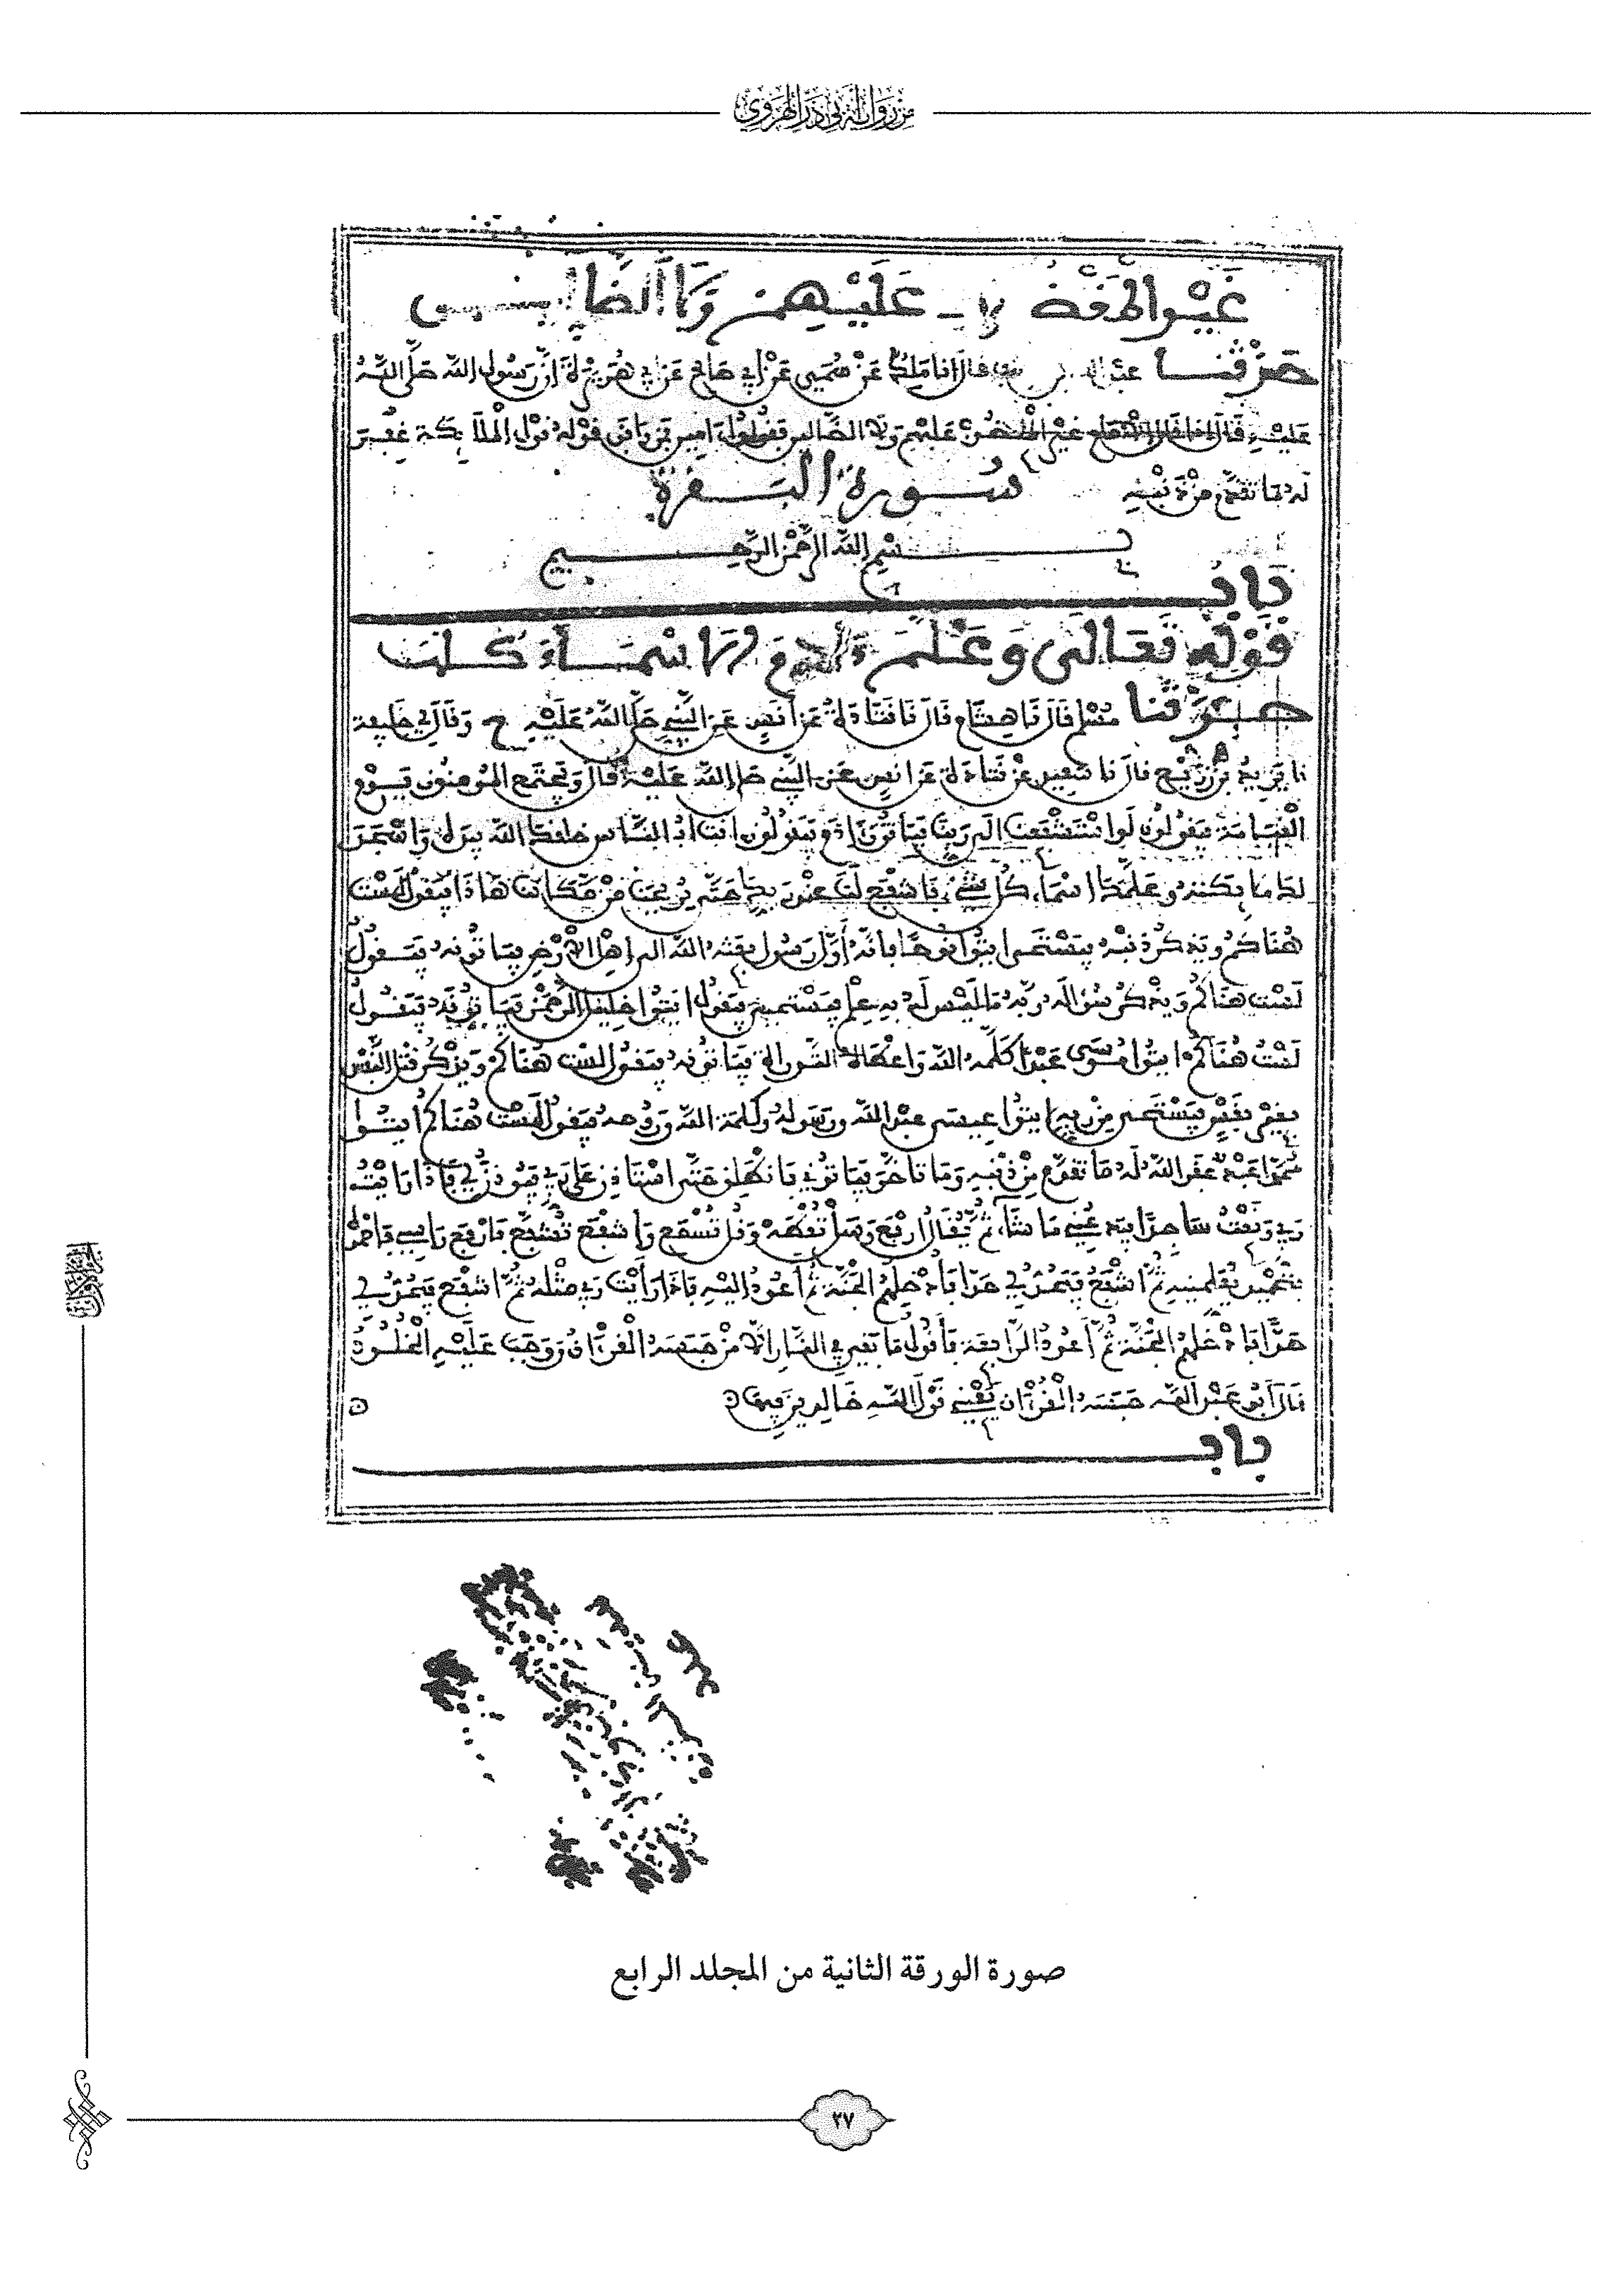 من رواية أبي ذر الهروي
غير المغضوب عليهم ولا الضالين
حدثنا عبد الله بن يوسف قال انا ملك عن سمي عن أبي صالح عن أبي هريرة أن رسول الله صلى الله
عليه قال إذا قال الإمام غير المغضوب عليهم ولا الضالين فقولوا ءامين فمن وافق قوله قول الملائكة غفر
له ما تقدم من ذنبه
سورة البقرة
بسم الله الرحمن الرحيم
باب
قوله تعالى وعلم ءادم الأسماء كلها
حدثنا مسلم قال نا هشام قال نا قتادة عن أنس عن النبي صلى الله عليه ح وقال لي خليفة
نا يزيد بن زريع قال نا سعيد عن قتادة عن انس عن النبي صلى الله عليه قال ويجتمع المومنون يوم
القيامة فيقولون لو استشفعنا الى ربنا فياتون ءادم فيقولون انت ابو الناس خلقك الله بيده واسجد
لك ملائكته وعلمك اسماء كل شيء فاشفع لنا عند ربك حتى يريحنا من مكاننا هاذا فيقول لست
هناكم ويذكر ذنبه فيستحي ايتوا نوحا فانه أول رسول بعثه الله الى اهل الأرض فياتونه فيقول
لست هناكم ويذكر سؤاله ربه ما ليس له به علم فيستحيي فيقول ايتوا خليل الرحمن فياتونه فيقول
لست هناكم ايتوا موسى عبدا كلمه الله واعطاه التوراة فياتونه فيقول لست هناكم ويذكر قتل النفس
بغير نفس فيستحي من ربه ايتوا عيسى عبد الله ورسوله وكلمة الله وروحه فيقول لست هناكم ايتوا
محمدا عبدا غفر الله له ما تقدم من ذنبه وما تاخر فياتوني فانطلق حتى استاذن على ربي فيوذن لي فاذا رايت
ربي وقعت ساجدا فيدعني ما شاء ثم يقال ارفع وسل تعطه وقل تسمع واشفع تشفع فارفع راسي فاحمده
بتحميد يعلمنيه ثم اشفع فيحد لي حدا فأدخلهم الجنة ثم أعود إليه فاذا رأيت ربي مثله ثم اشفع فيحد لي
حدا فادخلهم الجنة ثم أعود الرابعة فأقول ما بقي في النار الا من حبسه القرءان ووجب عليه الخلود
قال أبو عبد الله حبسه القرءان يعني قول الله خالدين فيها
باب
صورة الورقة الثانية من المجلد الرابع
٢٧